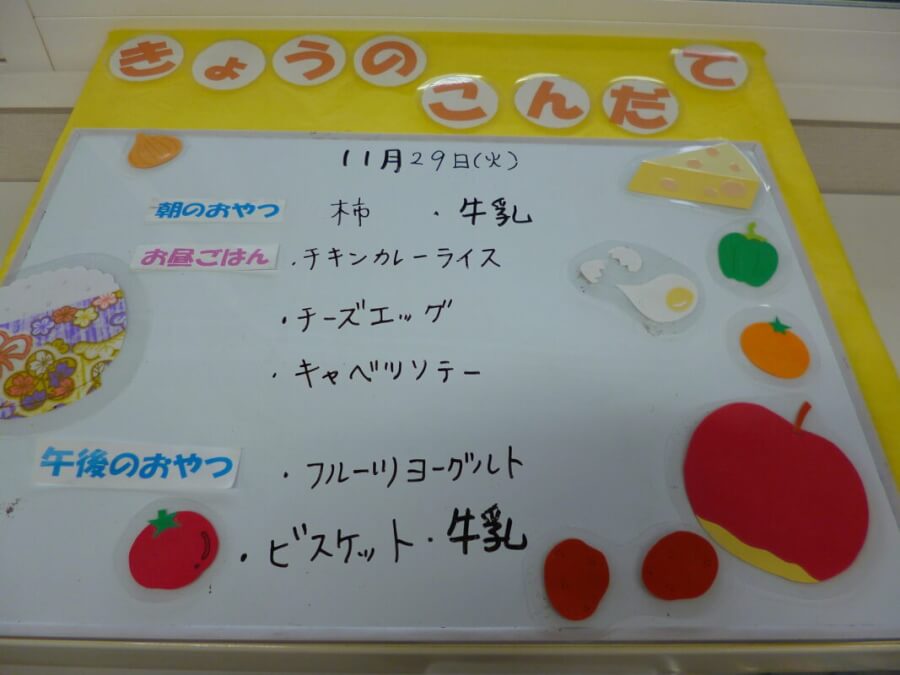 きょうのこんだて
11月29日(火)
朝のおやつ 柿 ・牛乳
お昼ごはん ・チキンカレーライス
・チーズエッグ
・キャベツソテー
午後のおやつ ・フルーツヨーグルト
・ビスケット・牛乳